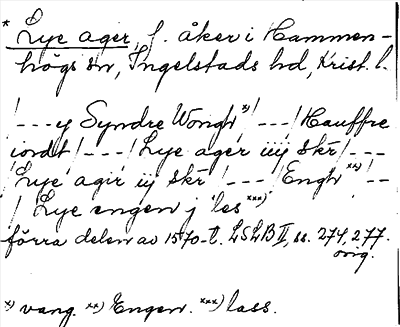 * Lye ager, f. åker i Hammen-
högs sn, Ingelstads hd, Krist. l.
/---y Syndre Wongh x)/---/ Hauffre
iordt /---/ Lye ager iiij skr /---
/ Lye agir iij skr /---/ Engh xx) /--
/ Lye engen j les xxx)
förra delen av 1570-t. LSLB II, ss. 274, 277.
orig.
x) vang. xx) Engen. xxx) lass.